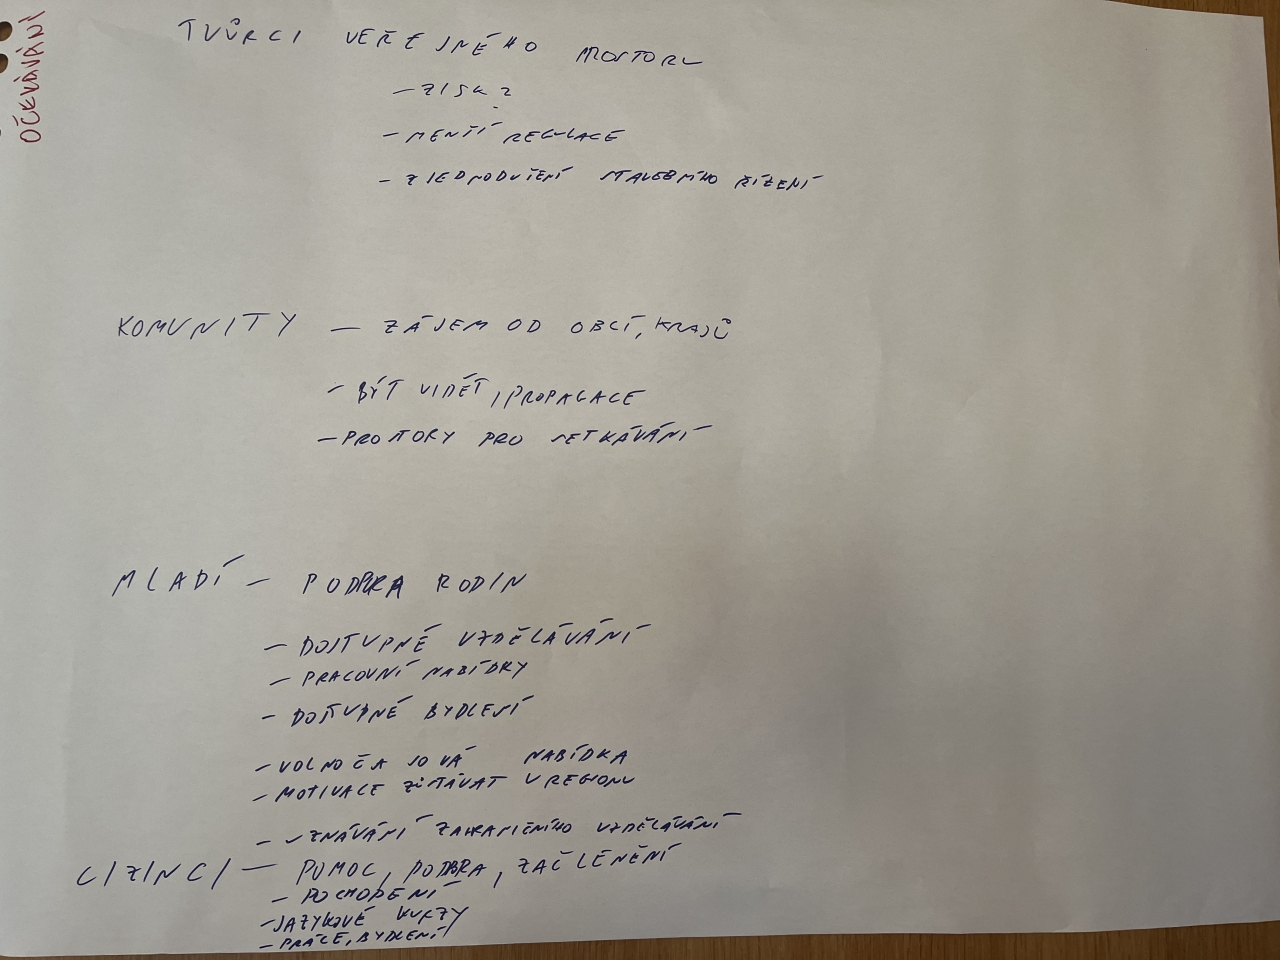 OČEKÁVÁNÍ
TVŮRCI VEŘEJNÉHO PROSTORU
- ZISK?
- MENŠÍ REGULACE
- ZJEDNODUŠENÍ STAVEBNÍHO ŘÍZENÍ
KOMUNITY - ZÁJEM OD OBCÍ, KRAJŮ
- BÝT VIDĚT, PROPAGACE
- PROSTORY PRO SETKÁVÁNÍ
MLADÍ - PODPORA RODIN
- DOSTUPNÉ VZDĚLÁVÁNÍ
- PRACOVNÍ NABÍDKY
- DOSTUPNÉ BYDLENÍ
- VOLNOČASOVÁ NABÍDKA
- MOTIVACE ZŮSTÁVAT V REGIONU
- UZNÁVÁNÍ ZAHRANIČNÍHO VZDĚLÁVÁNÍ
CIZINCI - POMOC, PODPORA, ZAČLENĚNÍ
- POCHOPENÍ
- JAZYKOVÉ KURZY
- PRÁCE, BYDLENÍ